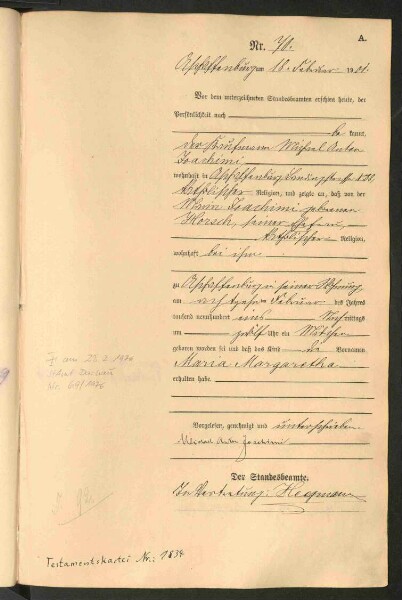 A.
Nr. 70.
Aschaffenburg am 18. Februar 1901.
Vor dem unterzeichneten Standesbeamten erschien heute, der
Persönlichkeit nach
be kannt,
der Kaufmann Michael Anton
Joachimi
wohnhaft in Aschaffenburg,
katholischer Religion, und zeigte an, daß von der
Joachimi, geborenen
Horsch, seiner Ehefrau,
katholischer Religion,
wohnhaft bei ihm
zu Aschaffenburg in seiner Wohnung
am Februar des Jahres
tausend neunhundert eins Nachmittags
um zwölf Uhr ein Mädchen
geboren worden sei und daß das Kind die Vornamen
Maria Margaretha
erhalten habe.
Vorgelesen, genehmigt und unterschrieben
Michael Anton Joachimi
Der Standesbeamte.
In Vertretung: Hegmann
Testamentskartei Nr.: 1834